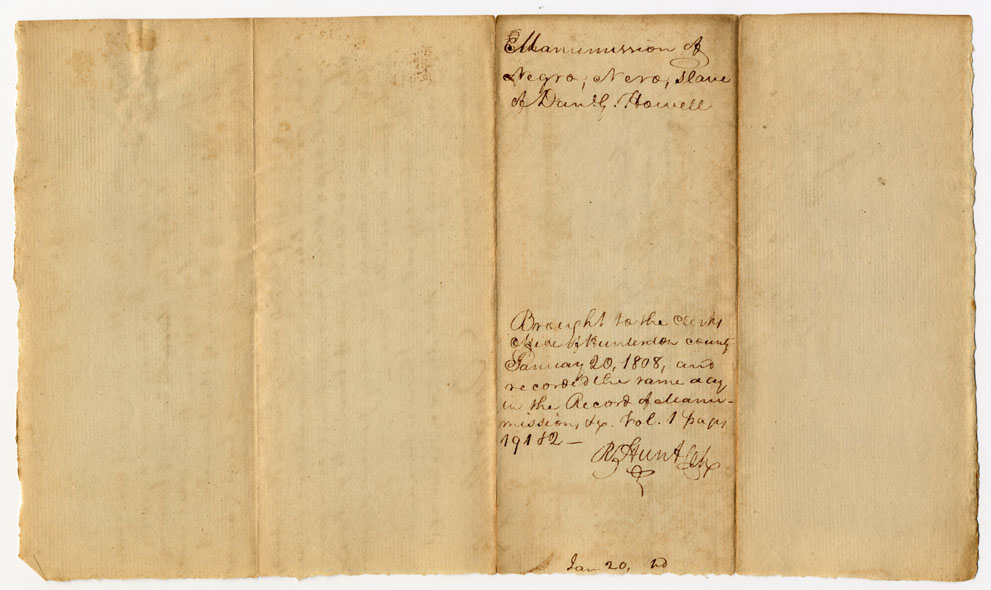 Manumission of
Negro, Nero, slave
of Danl. G. Howell
Brought to the Clerks
Office of Hunterdon county
January 20, 1808, and
recorded the same day
in the Record of Manu-
missions, &c. Vol. 1 pages
191 & 2 —
R Hunt Clk
Jan 20,